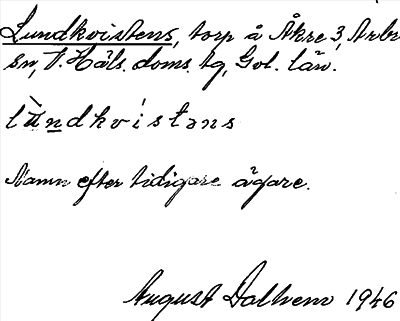 Lundkvistens, torp å Åkre 3, Arbr
sn, V. Häls. doms. tg, Gävl. län.
lùndkvístəns
Namn efter tidigare ägare.
August Dalhem 1946